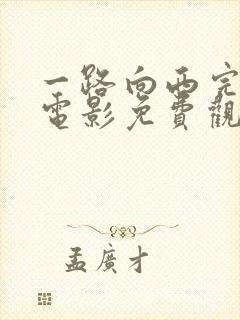 一路向西完
電影免費觀
孟廣才